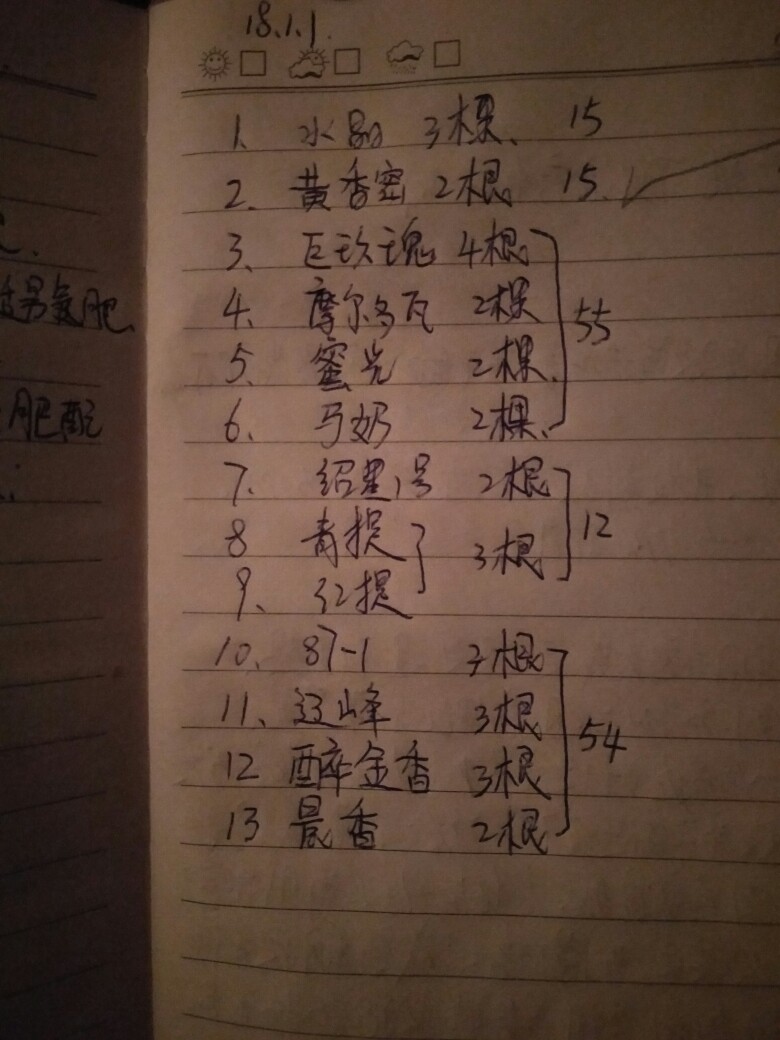 18.1.1.
1、水晶 3棵、 15
2、黄香蜜 2根 15.
3、巨玫瑰 4根
4、摩尔多瓦 2棵
55
5、蜜光 2棵、
6、马奶 2棵、
7、绍星1号 2根
12
8 青提
3根
9、红提
10、87-1 3根
11、辽峰 3根
54
12 醉金香 3根
13 晨香 2根
氮肥
肥配